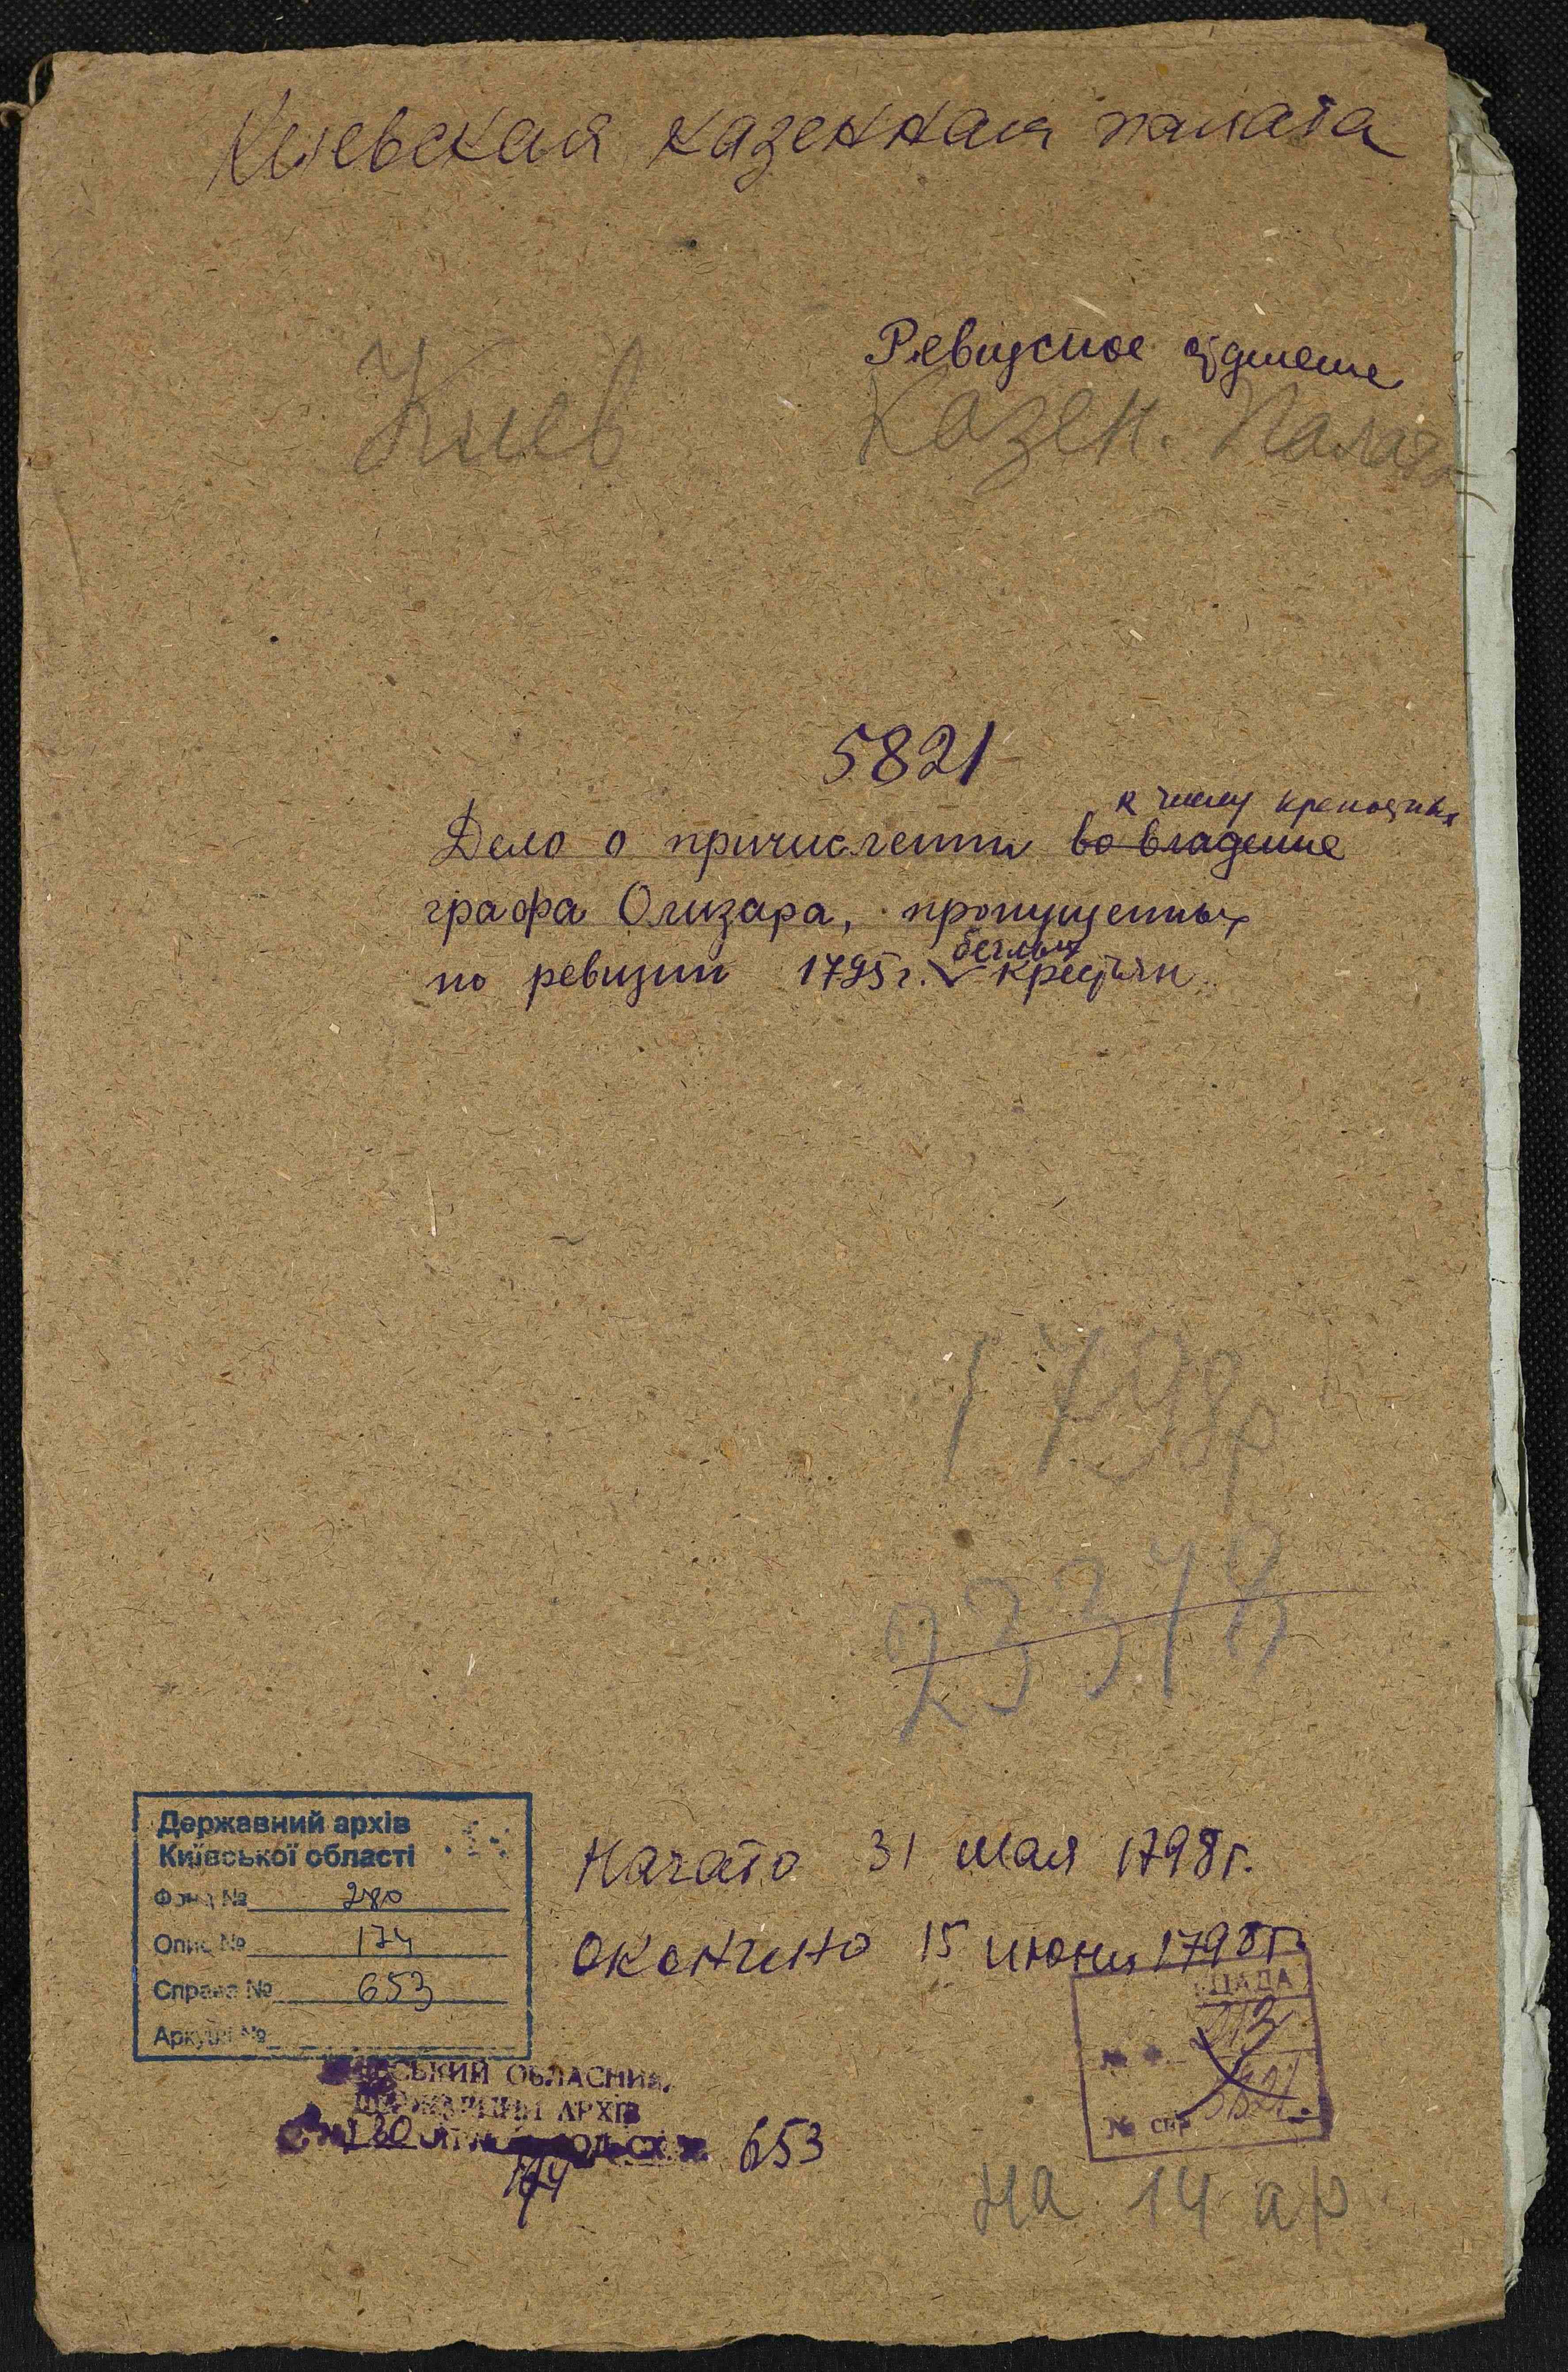 Киевская казенная палата
Ревизское отделение
Киев Казен. Палата
5821
к числу крепостных
Дело о причислении во владение
графа Олизара, пропущенных
беглых
по ревизии 1795 г. крестьян
1798р
23378
Державний архів
Київської області
Фонд № 280
Опис № 174
Справа № 653
Аркушів №
Начато 31 мая 1798 г.
Окончено 15 июня 1798 г.
ЦАДА
213
5821
№ спр.
ОБЛАСНИЙ
ДЕРЖАВНИЙ АРХІВ
280
653
174
на 14 ар